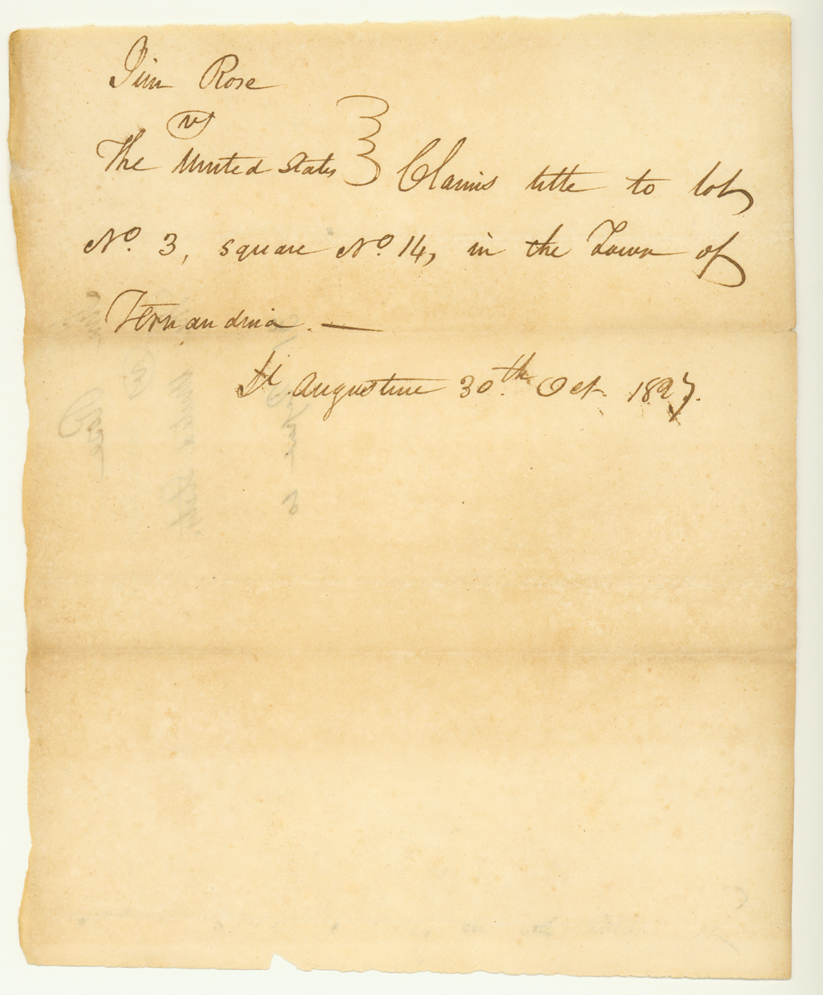 Jim Rose
vs
The United States } Claims title to lot
No. 3, square No. 14, in the Town of
Fernandina. —
St. Augustine 30.th Oct. 1827.